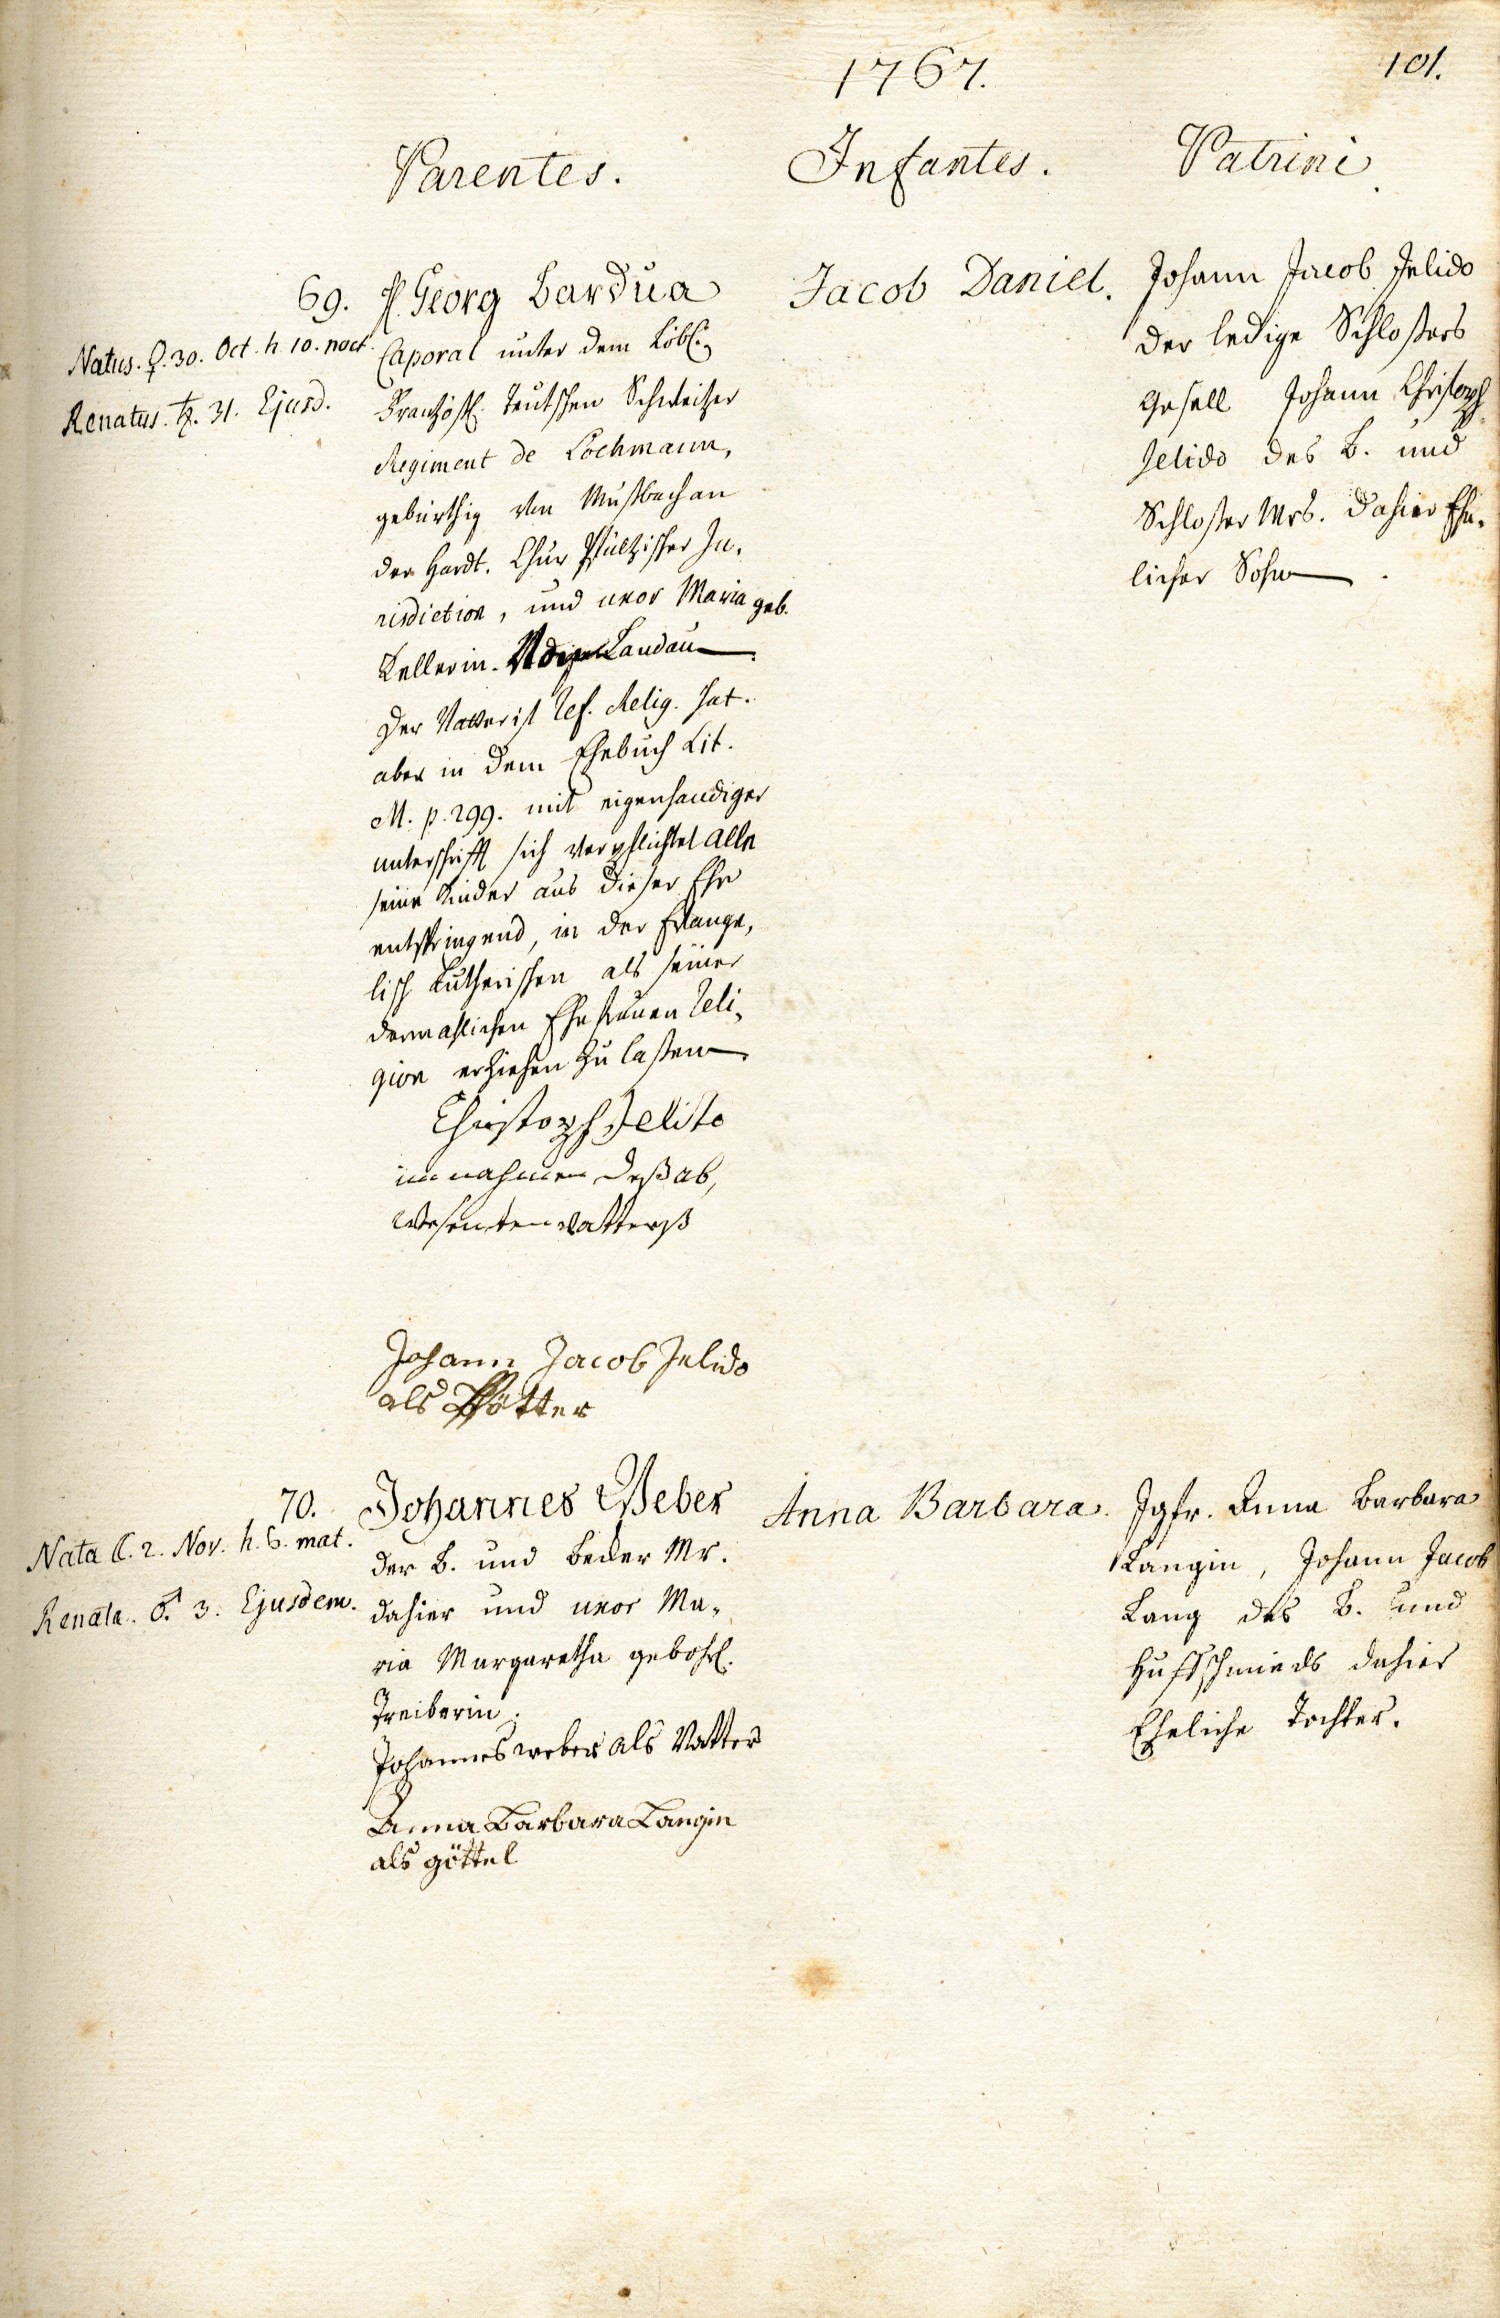 1767.
101.
Parentes.
Infantes.
Patrini
69. H. Georg Bardua
Caporal unter dem Löbl.
Frantzösl. Teutschen Schweitzer
Regiment de Lochmann,
gebürthig von Mußbach an
der Hardt. Chur Pfältzischer Ju,
risdiction, und uxor Maria geb.
Kellerin. Landau
Der Vatter ist Ref. Relig. hat.
aber in dem Ehebuch Lit.
M. p. 299. mit eigenhändiger
unterschrifft sich verpflichtet alle
seine Kinder aus dieser Ehe
entspringend, in der Evange,
lisch Lutherischen als seiner
dermahlichen Ehefrauen Reli,
gion erziehen zu laßen
Christoph Jelito
im nahmen deß ab,
wesenten vatterß
Johann Jacob Jelido
als Pfötter
Natus. ♀. 30. Oct. h 10. noct.
Renatus. ♄. 31. Ejusd.
Jacob Daniel.
Johann Jacob Jelido
der ledige Schloßers
Gesell Johann Christoph
Jelido des B. und
Schloßer Mrs. dahier Ehe,
licher Sohn
70. Johannes Weber
der B. und Becker Mr.
dahier und uxor Ma,
ria Margaretha gebohrl.
Treiberin.
Johannes weber als Vatter
Anna Barbara Langin
als göttel
Nata ☾. 2. Nov. h. 6. mat.
Renata. ♂. 3. Ejusdem.
Anna Barbara.
Jgfr. Anna Barbara
Langin, Johann Jacob
Lang des B. und
Hufschmieds dahier
Eheliche Tochter.